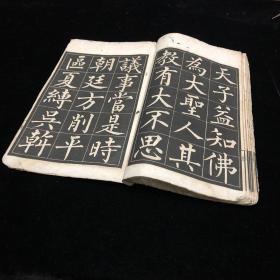 天子益知佛
為大聖人其
教有大不思
議事當是時
朝廷方削平
區夏縛吳斡